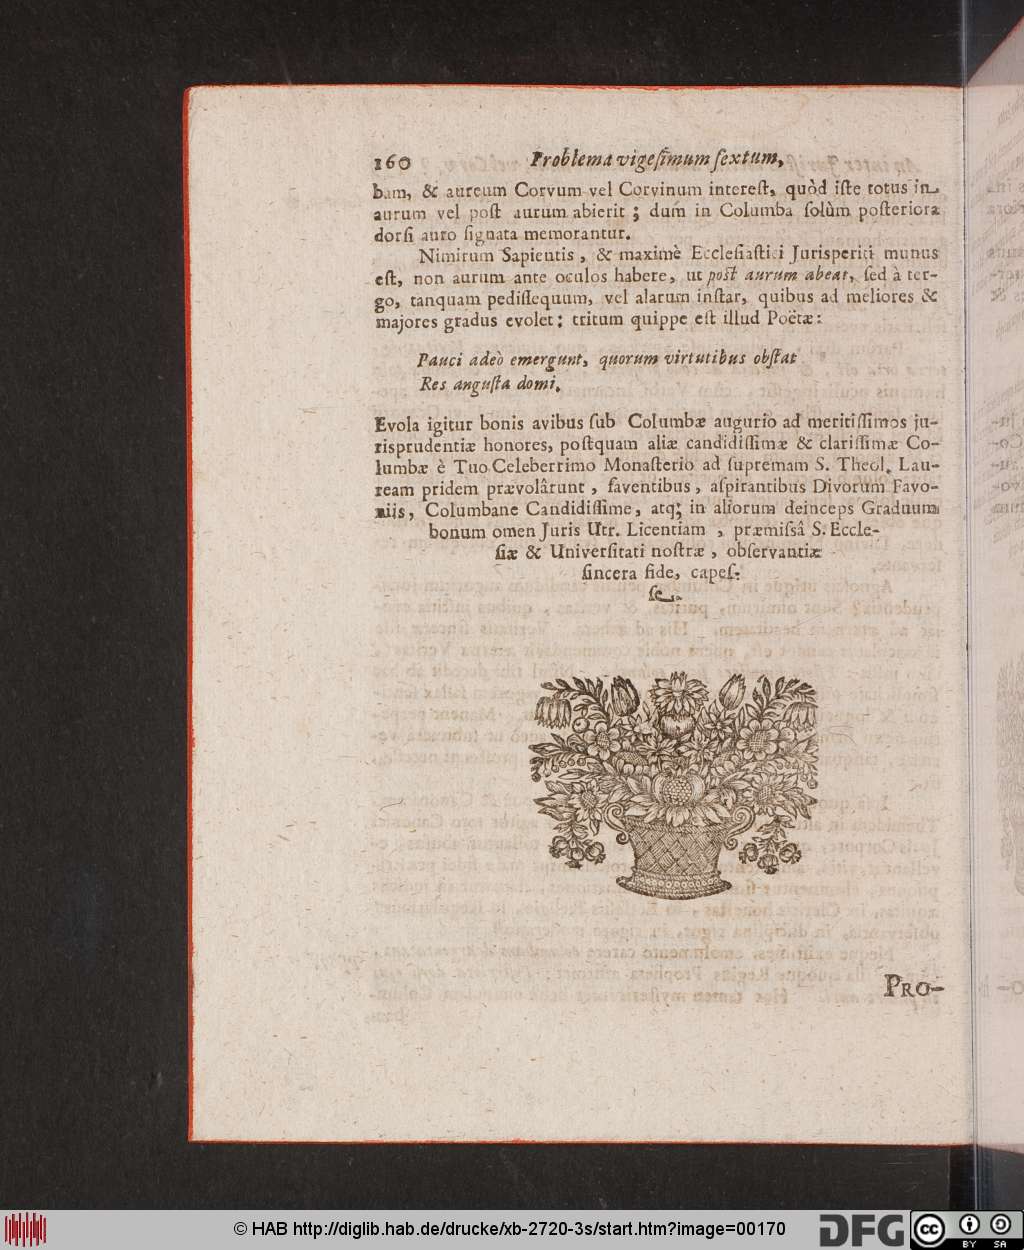 160 Problema vigeſimum ſextum,
bam, & aureum Corvum vel Corvinum intereſt, quòd iſte totus in
aurum vel poſt aurum abierit ; dum in Columba ſolùm poſteriora
dorſi auro ſignata memorantur.
Nimirum Sapientis, & maximè Eccleſiaſtici Jurisperiti munus
eſt, non aurum ante oculos habere, ut poſt aurum abeat, ſed à ter-
go, tanquam pediſſequum, vel alarum inſtar, quibus ad meliores &
majores gradus evolet: tritum quippe eſt illud Poëtæ:
Pauci adeò emergunt, quorum virtutibus obſtat
Res anguſta domi.
Evola igitur bonis avibus ſub Columbæ augurio ad meritiſſimos ju-
risprudentiæ honores, poſtquam aliæ candidiſſimæ & clariſſimæ Co-
lumbæ è Tuo Celeberrimo Monaſterio ad ſupremam S. Theol. Lau-
ream pridem prævolârunt, faventibus, aſpirantibus Divorum Favo-
niis, Columbane Candidiſſime, atq; in aliorum deinceps Graduum
bonum omen Juris Utr. Licentiam, præmiſsâ S. Eccle-
ſiæ & Univerſitati noſtræ, obſervantiæ
ſincera fide, capeſ-
ſe.
PRO-
© HAB http://diglib.hab.de/drucke/xb-2720-3s/start.htm?image=00170
DFG
cc BY SA